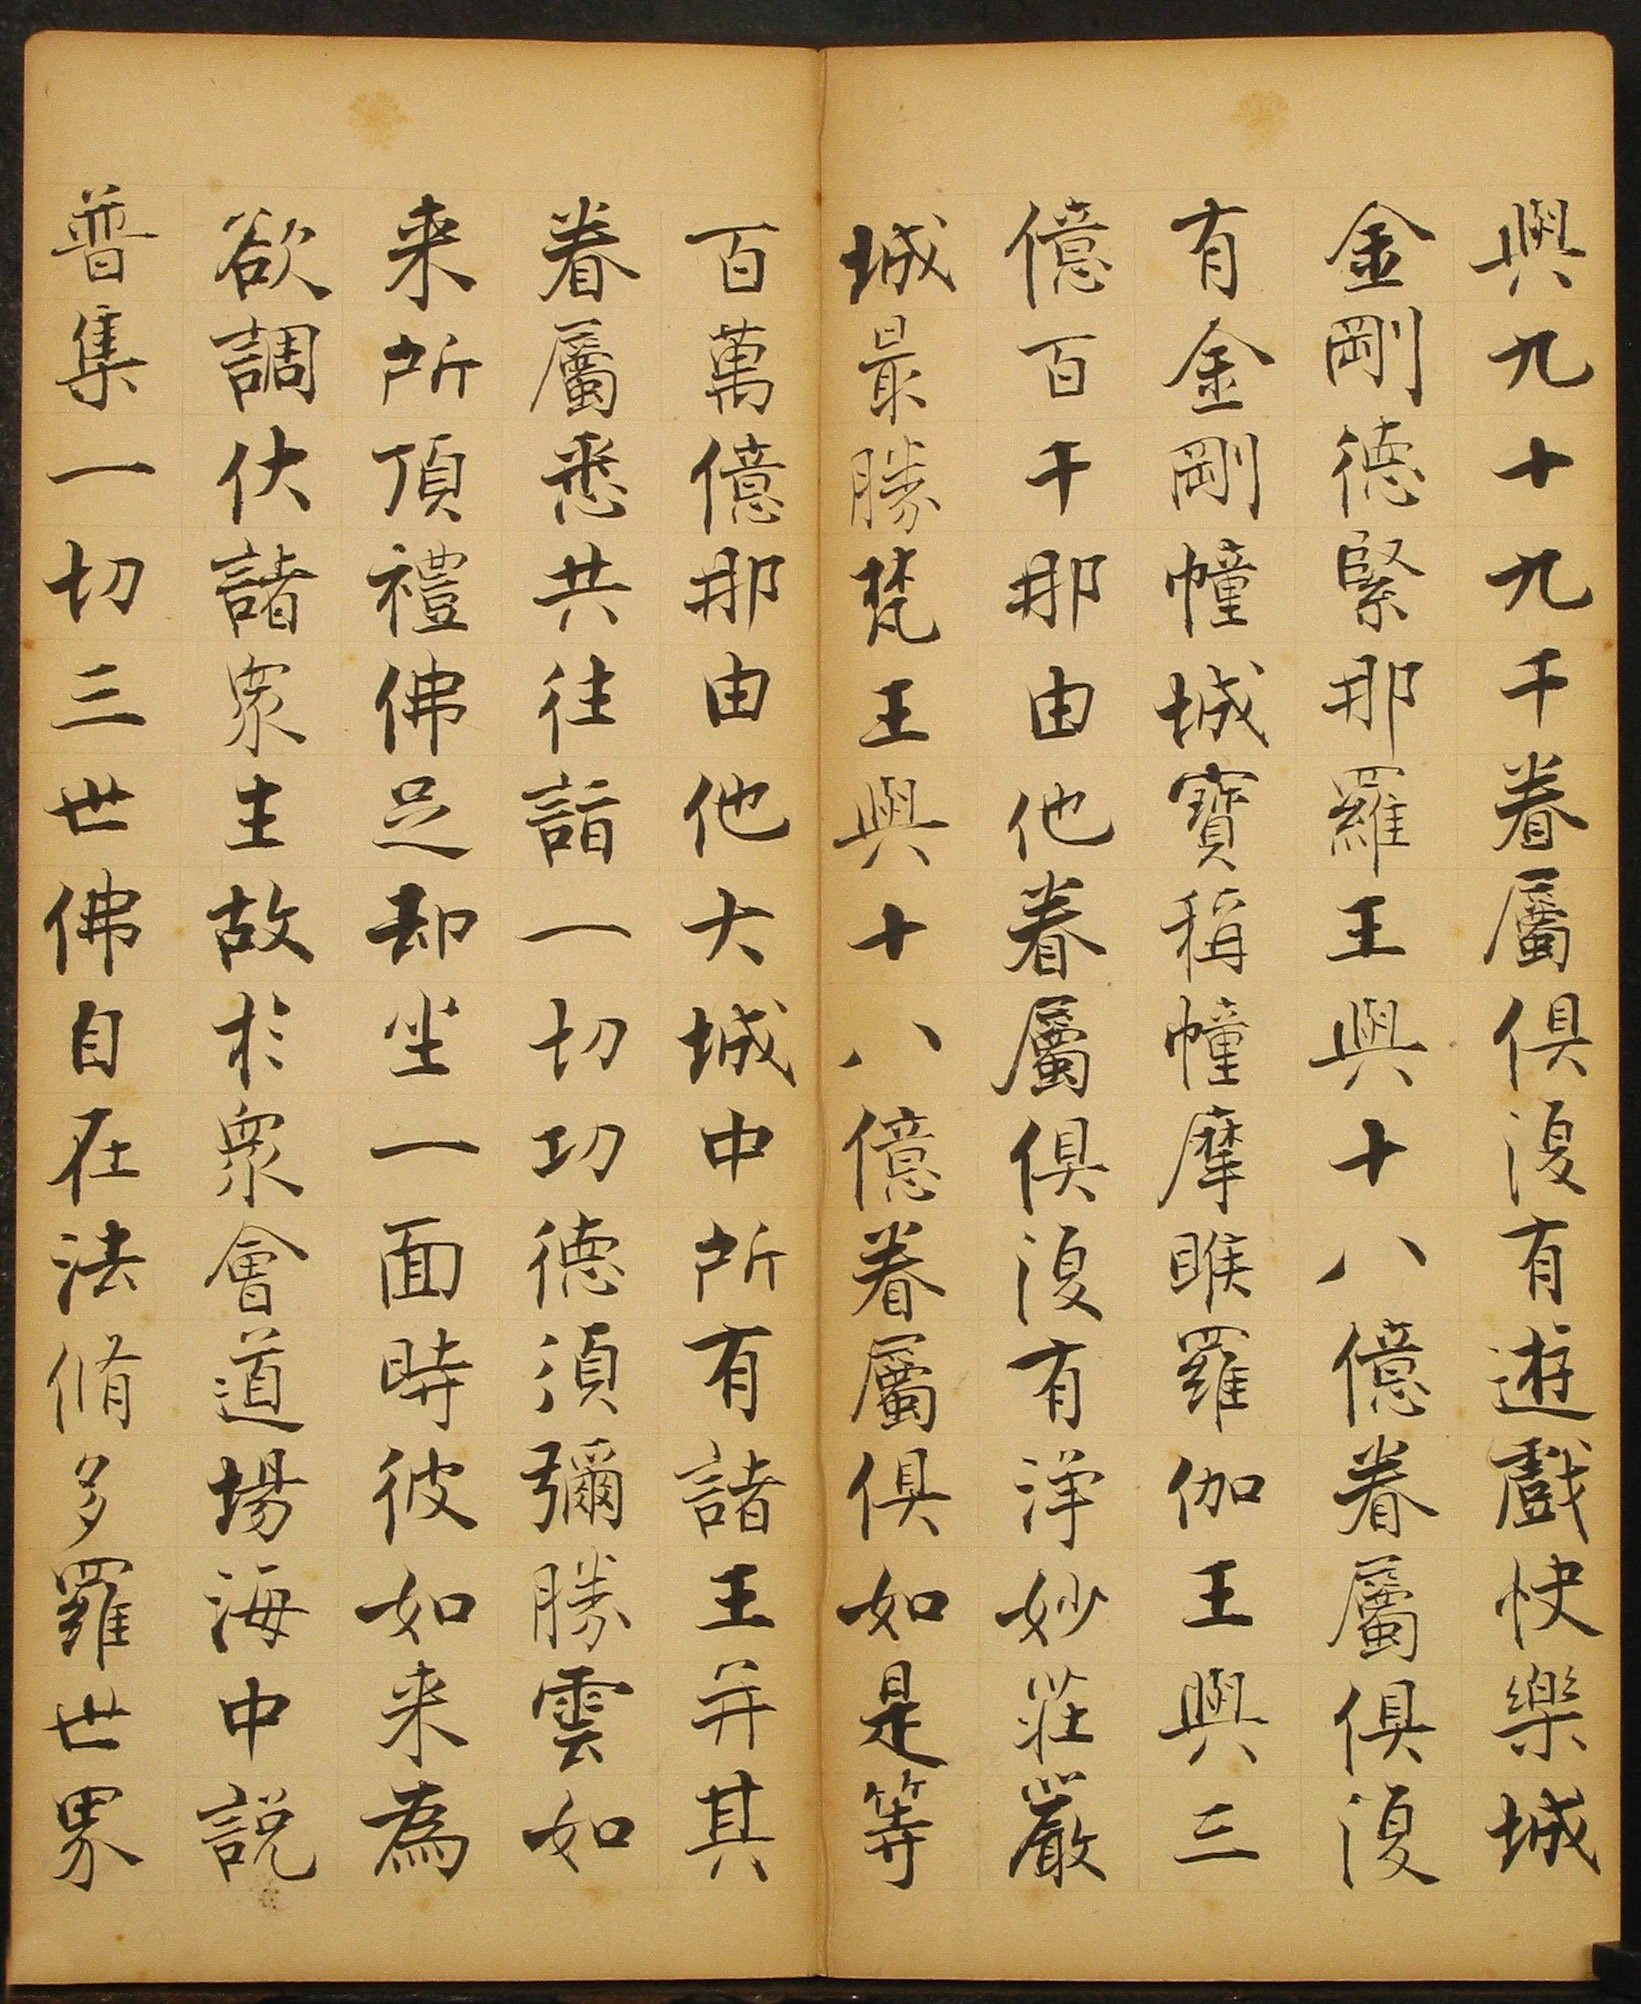 與九十九千眷屬俱復有遊戲快樂城
金剛德緊那羅王與十八億眷屬俱復
有金剛幢城寶稱幢摩睺羅伽王與三
億百千那由他眷屬俱復有淨妙莊嚴
城最勝梵王與十八億眷屬俱如是等
百萬億那由他大城中所有諸王并其
眷屬悉共往詣一切功德須彌勝雲如
来所頂禮佛足却坐一面時彼如来為
欲調伏諸衆生故於衆會道場海中說
普集一切三世佛自在法脩多羅世界